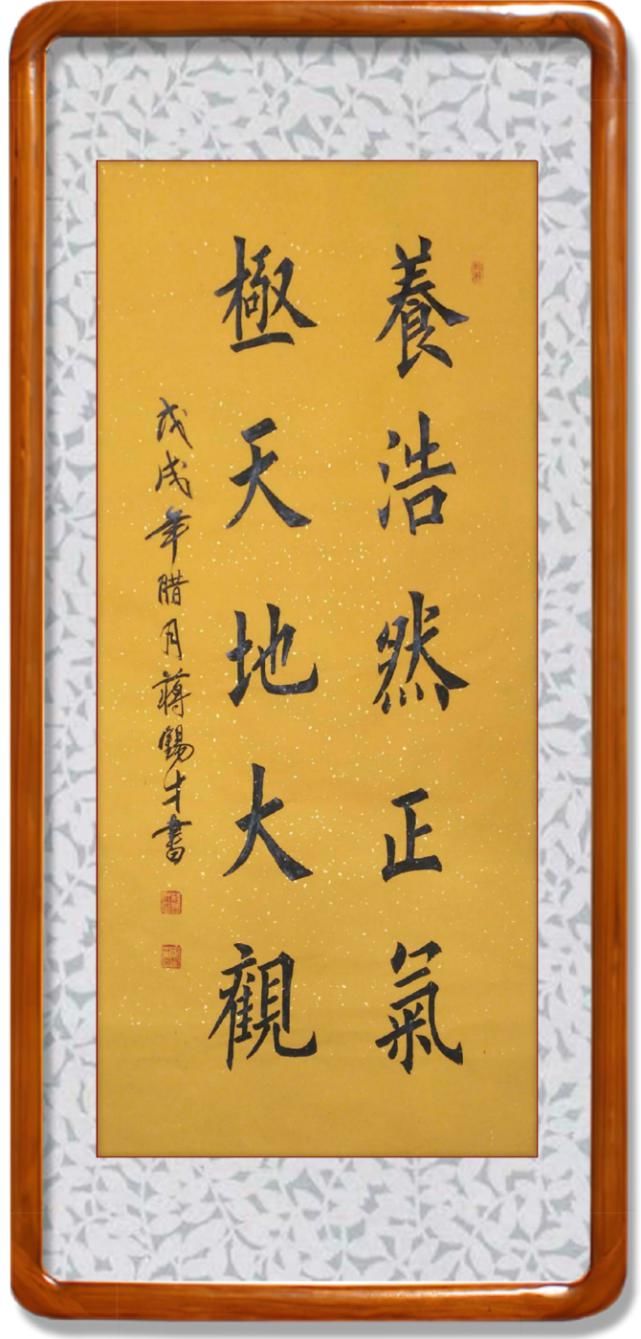 養浩然正氣
極天地大觀
戊戌年腊月蔣錫才書